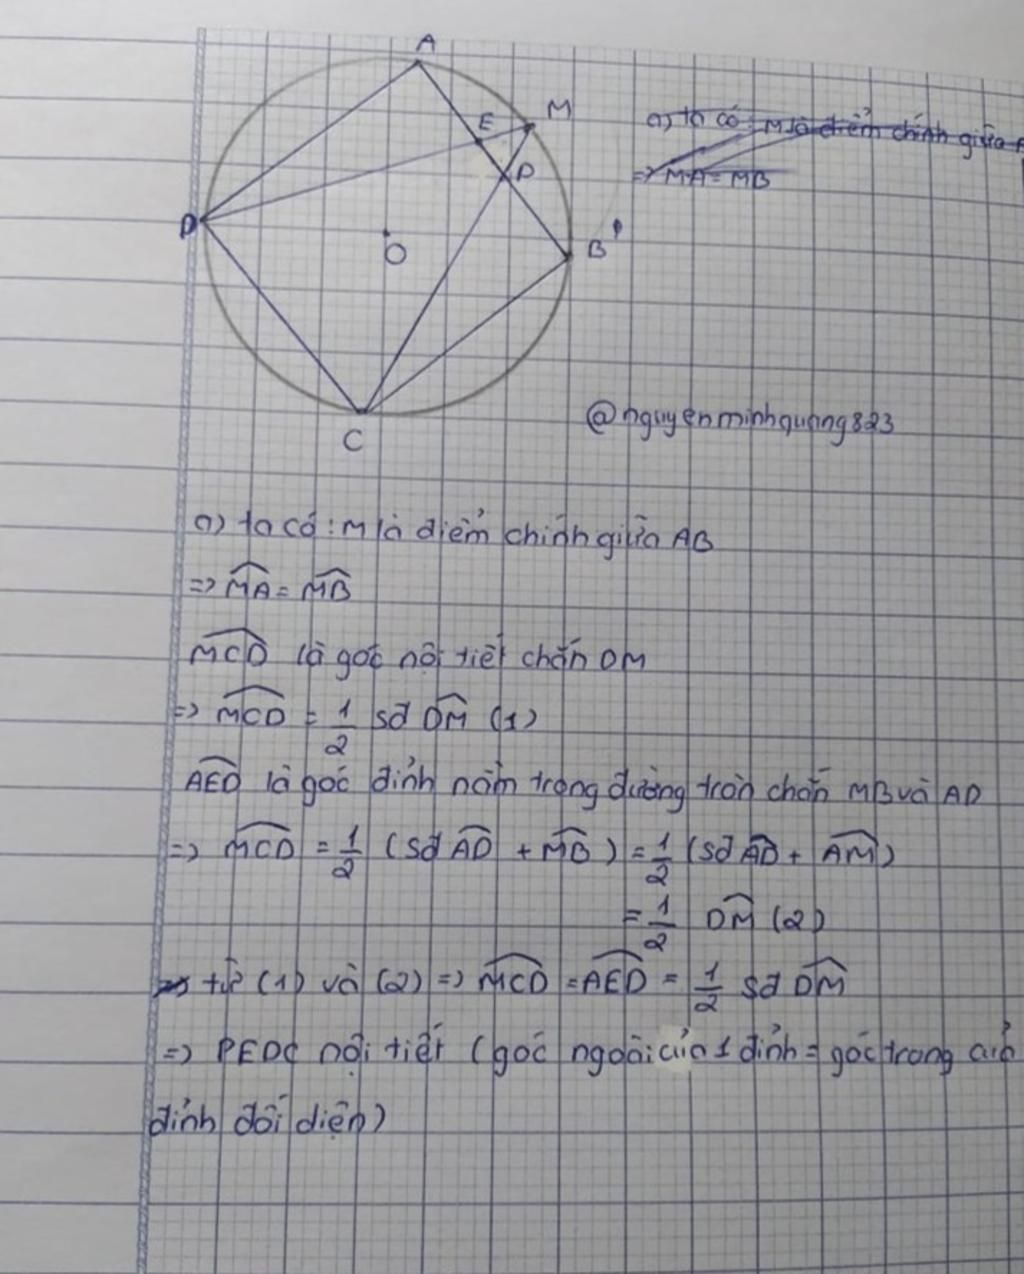 A
M
E
P
D
O
B
C
a) ta có: M là điểm chính giữa
=> MA = MB
@nguyenminhquang823
a) ta có: M là điểm chính giữa AB
=> MA = MB
MCD là góc nội tiếp chắn DM
=> MCD = 1/2 sđ DM (1)
AED là góc đỉnh nằm trong đường tròn chắn MB và AD
=> MCD = 1/2 (sđ AD + MB) = 1/2 (sđ AD + AM)
= 1/2 DM (2)
từ (1) và (2) => MCD = AED = 1/2 sđ DM
=> PEDC nội tiết (góc ngoài của 1 đỉnh = góc trong của
đỉnh đối diện)